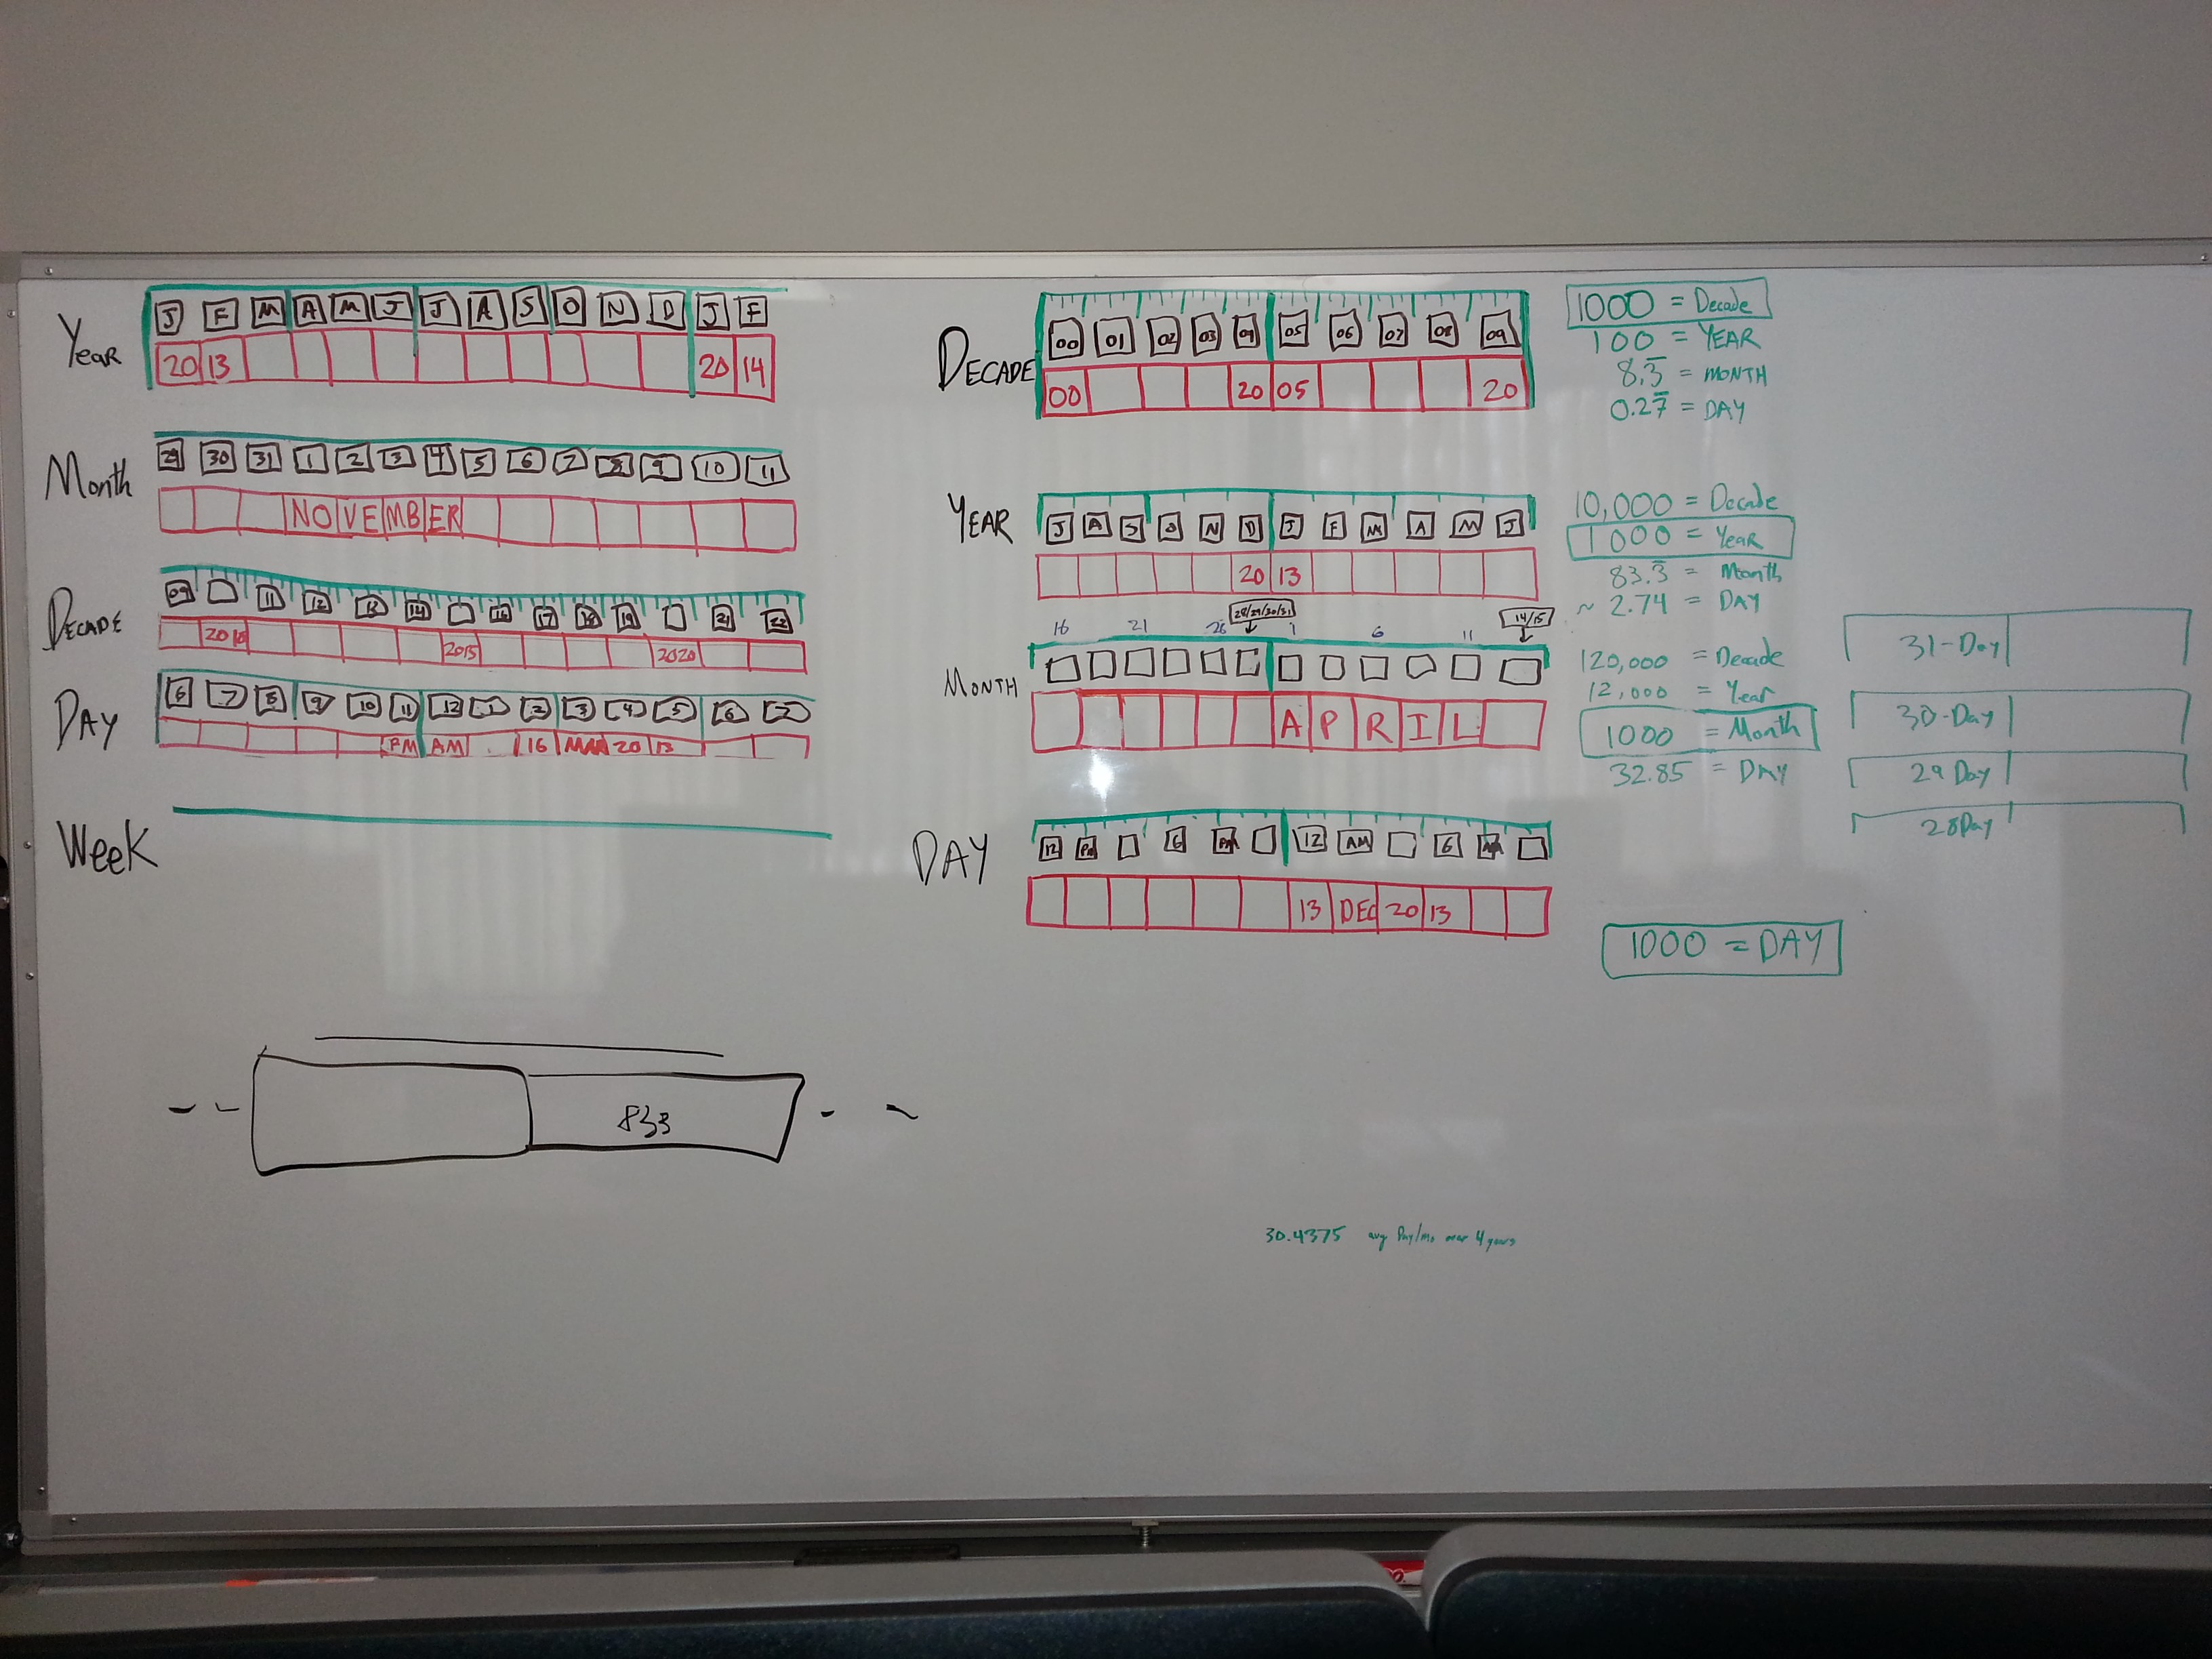 Year
J F M A M J J A S O N D J F
20 13 20 14
Month
29 30 31 1 2 3 4 5 6 7 8 9 10 11
NOVEMBER
DECADE
09 11 12 13 14 16 17 18 19 21 22
2010 2015 2020
DAY
6 7 8 9 10 11 12 1 2 3 4 5 6 7
PM AM 16 MAR 20 13
Week
833
DECADE
00 01 02 03 04 05 06 07 08 09
00 20 05 20
YEAR
J A S O N D J F M A M J
20 13
28/29/30/31 14/15
16 21 26 1 6 11
MONTH
A P R I L
DAY
12 PM 6 PM 12 AM 6 AM
13 DEC 20 13
1000 = Decade
100 = YEAR
8.3̅ = MONTH
0.27̅ = DAY
10,000 = Decade
1000 = Year
83.3̅ = Month
~ 2.74 = DAY
120,000 = Decade
12,000 = Year
1000 = Month
32.85 = DAY
31-Day
30-Day
29 Day
28 Day
1000 = DAY
30.4375 avg Day/mo over 4 years